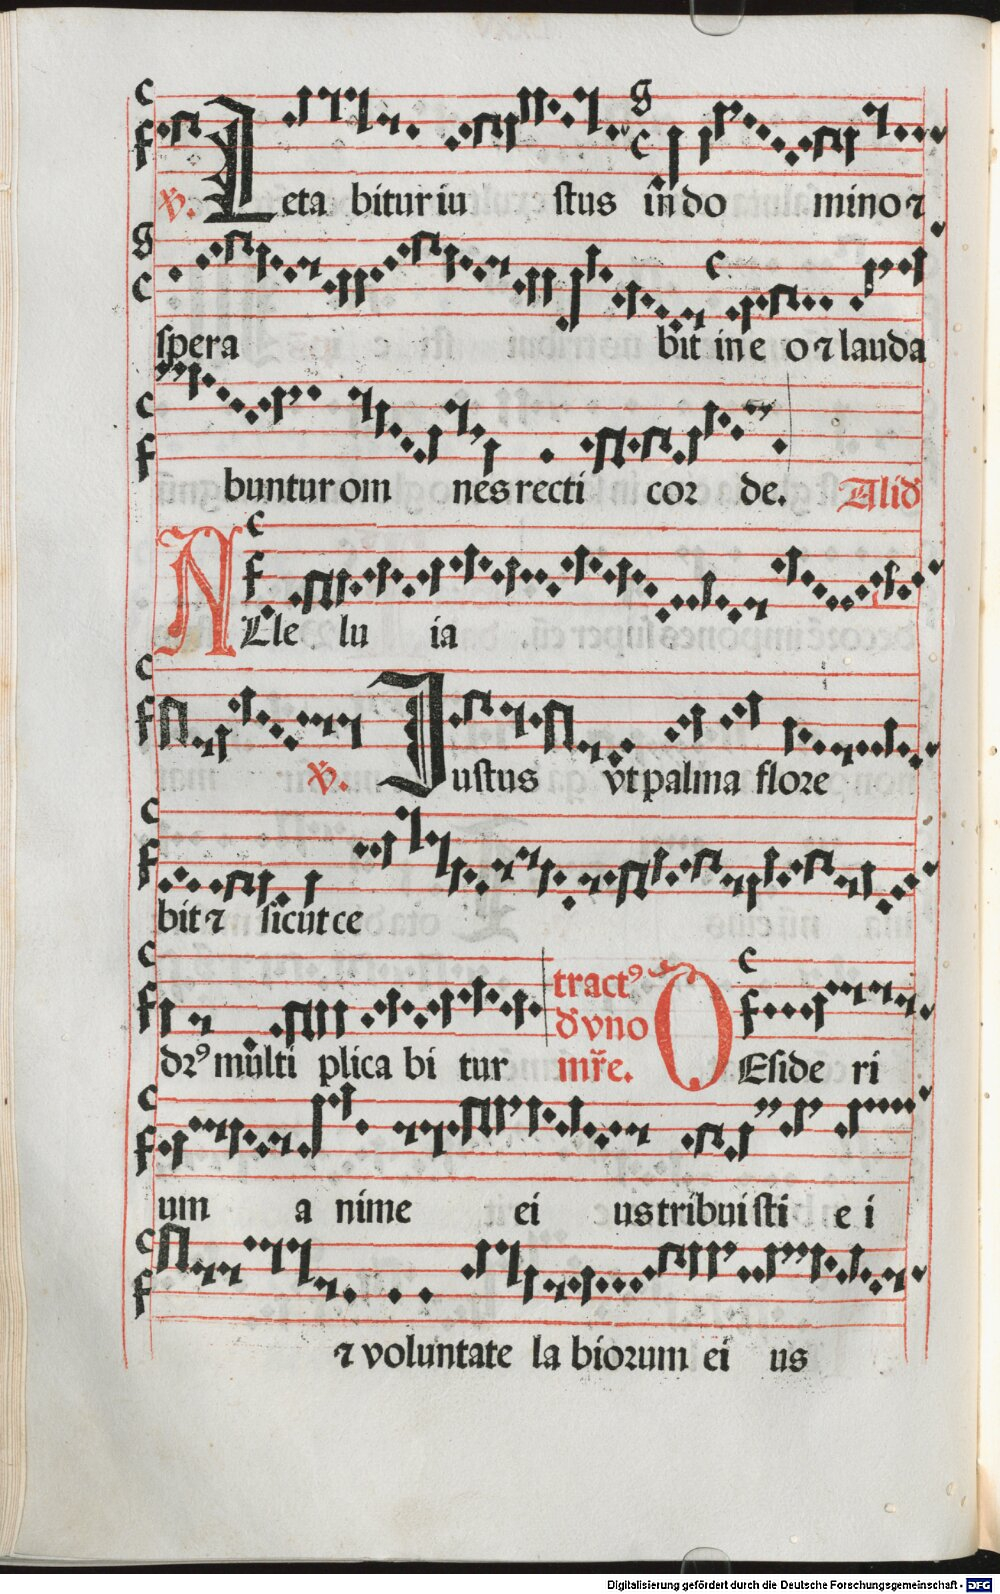 ℣. Leta bitur iu stus in do mino ⁊
spera bit in e o ⁊ lauda
buntur om nes recti cor de. Aliđ
ALle lu ia
℣. Iustus vt palma flore
bit ⁊ sicut ce
drꝰ multi plica bi tur tractꝰ
đ vno
mr̃e. DEside ri
um a nime ei us tribuisti e i
⁊ voluntate la biorum ei us
Digitalisierung gefördert durch die Deutsche Forschungsgemeinschaft - DFG